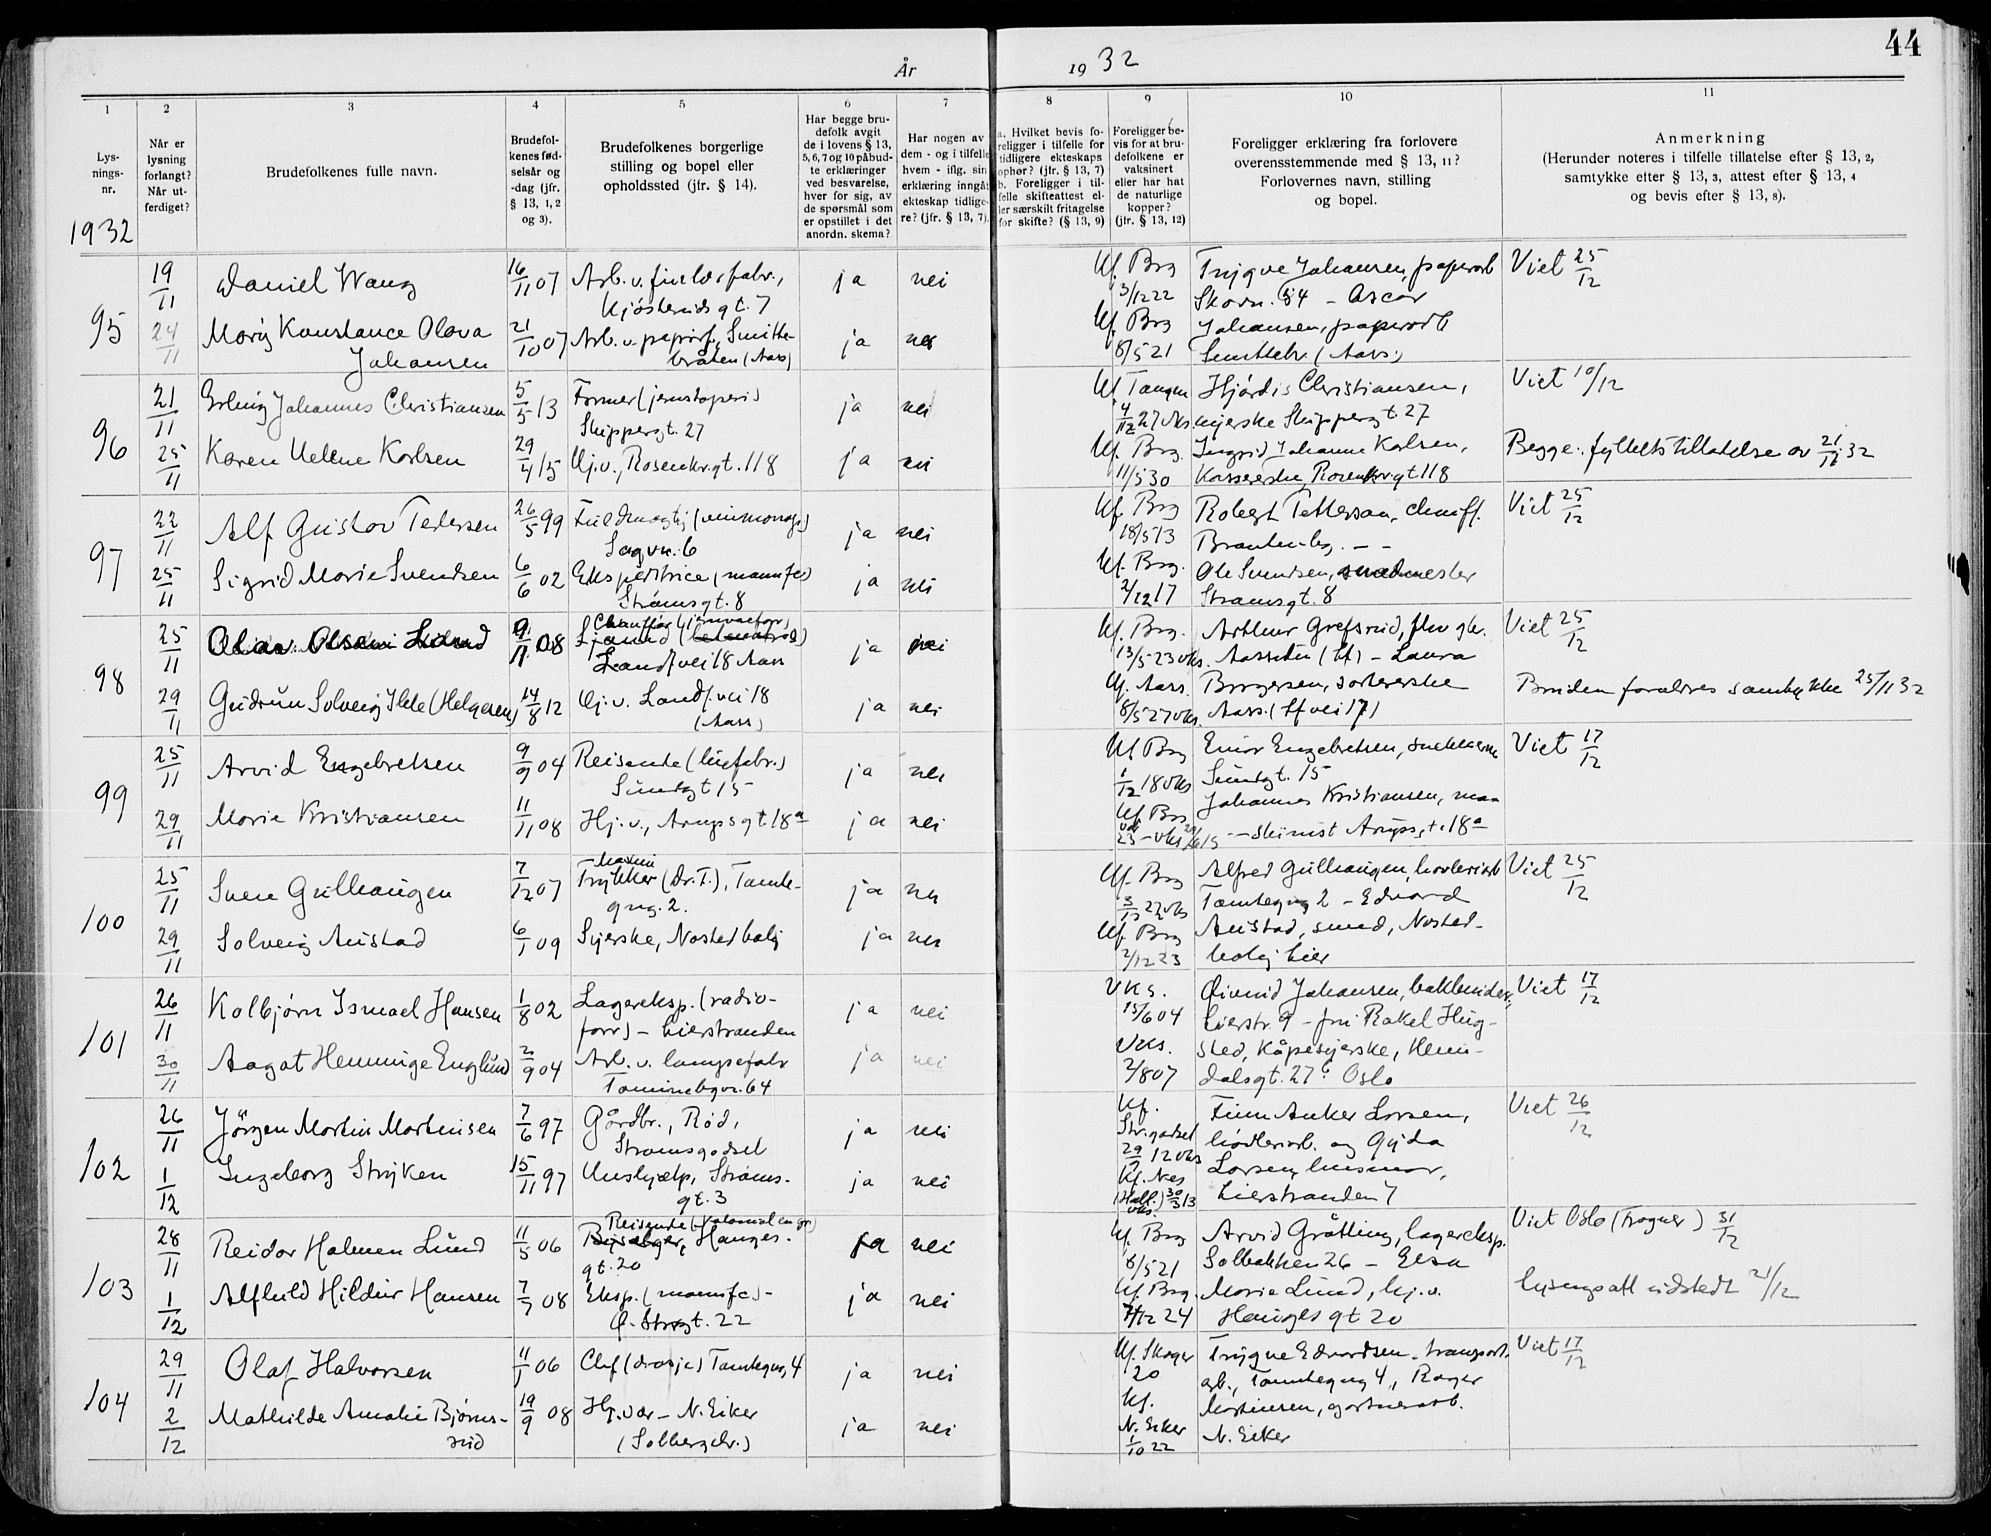 44
År 1932
1 2 3 4 5 6 7 8 9 10 11
Lysnings-nr.
Når er lysning forlangt? Når utferdiget?
Brudefolkenes fulle navn.
Brudefolkenes fødselsår og -dag (jfr. § 13, 1, 2 og 3).
Brudefolkenes borgerlige stilling og bopel eller opholdssted (jfr. § 14).
Har begge brudefolk avgit de i lovens § 13, 5, 6, 7 og 10 påbudte erklæringer ved besvarelse, hver for sig, av de spørsmål som er opstillet i det anordn. skema?
Har nogen av dem - og i tilfelle hvem - iflg. sin erklæring inngått ekteskap tidligere? (jfr. § 13, 7).
a. Hvilket bevis foreligger i tilfelle for tidligere ekteskaps ophør? (jfr. § 13, 7) b. Foreligger i tilfelle skifteattest eller særskilt fritagelse for skifte? (§ 13, 9)
Foreligger bevis for at brudefolkene er vaksinert eller har hat de naturlige kopper? (jfr. § 13, 12)
Foreligger erklæring fra forlovere overensstemmende med § 13, 11? Forlovernes navn, stilling og bopel.
Anmerkning (Herunder noteres i tilfelle tillatelse efter § 13, 2, samtykke efter § 13, 3, attest efter § 13, 4 og bevis efter § 13, 8).
1932
95 19/11 Daniel Wang 16/11 07 Arb. v. ja nei Kf. Brg Trygve Johansen, papirarb Viet 25/12
gt. 7 3/12 22 Skovv. 84 - Oscar
24/11 Mary Konstance Olava 21/10 07 Arb. v. papirf., Smitte- ja nei Kf. Brg Johansen, papirarb
Johansen bråten (Aass) 8/5 21 Smittebr. (Aass.)
96 21/11 Erling Johannes Christiansen 5/5 13 Former (jernstøperi) ja nei Kf Tangen Hjördis Christiansen, Viet 10/12
Skippergt. 27 4/12 27 vks. syerske Skippergt. 27
25/11 Karen Helene Karlsen 29/4 15 Hj.v., Rosenkr.gt. 118 ja nei Kf. Brg. Ingrid Johanne Karlsen, Begge: fylkets tilladelse av 21/11 32
11/5 30 Kassererske, Rosenkr.gt 118
97 22/11 Alf Gustav Pettersen 26/5 99 Fuldmægtig (vinmonop.) ja nei Kf. Brg Robert Petterson, Viet 25/12
Sagvn. 6 18/5 13
25/11 Sigrid Marie Svendsen 6/6 02 Ekspeditrice (manufac) ja nei Kf. Brg. Ole Svendsen, smedmester
Strømsgt. 8 2/12 17 Strømsgt. 8
98 25/11 08 Chauffør ja nei Kf. Brg. Arthur Grefsrud, Viet 25/12
Landf.vei 18 Aass 13/5 23 vks. - Laura
29/11 Gudrun Solveig (Helgesen) 14/8 12 Hj. v. Landf.vei 18 ja nei Kf. Aass. Borgersen, sortererske Bruden foreldres samtykke 25/11 32
(Aass) 8/5 27 vks. Aass. (Lf vei 17)
99 25/11 Arvid Engebretsen 9/9 04 Reisende ja nei Kf. Brg Einar Engebretsen, Viet 17/12
Sundgt 15 1/12 18 vks Sundgt. 15
29/11 Marie Kristiansen 11/11 08 Hj. v., Arupsgt. 18 a ja nei Kf. Brg Johannes Kristiansen, mas-
-skinist Arupsgt. 18 a
100 25/11 Svein Gulhaugen 7/12 07 Maskin Trykker (Dr. T.), Tomte- ja nei Kf. Brg Alfred Gulhaugen, Viet 25/12
gt. 2. 22 vks 2 - Edvard
29/11 Solveig Austad 6/1 09 Syerske, Nøsted bolig ja nei Kf. Brg Austad, smed, Nøsted-
2/12 23 bolig Lier
101 26/11 Kolbjørn Ismael Hansen 1/8 02 Lagereksp. (radio- ja nei Vks. Øivind Johansen, bokbinder, Viet 17/12
forr) - Lierstranden 15/6 04 Lierstr. 9 - frk Rakel Hug-
30/11 Aagot Hemminge Englund 2/9 04 Arb. v. lampefabr ja nei Vks. sted, kåpesyerske, Heim-
64 2/8 07 dalsgt. 27 b Oslo
102 26/11 Jörgen Martin Martinsen 7/6 97 Gårdbr., Rød, ja nei Kf. Finn Anker Larsen, Viet 26/12
Strømsgodset Str.godset høvleriarb. og Gyda
1/12 Ingeborg Stryken 15/11 97 Hushjælp, Strøms- ja nei Kf. Nes Larsen, husmor,
gt. 3 (Hall.) 30/3 13 vks. Lierstranden 7
103 28/11 Reidar Halmen Lund 11/5 06 Reisende (kolonial en gr) Hauges- ja nei Kf. Brg Arvid Gråtting, lagereksp. Viet Oslo (Frogner) 31/12
gt. 20 8/5 21 Solbakken 26 - Elsa
1/12 Alfhild Hildur Hansen 7/7 08 Eksp. (manufac) - ja nei Kf. Brg. Marie Lund, hj. v. Lysningsatt utstedt 21/12
Ø. Storgt. 22 7/12 24 Hauges gt 20
104 29/11 Olaf Halvorsen 11/1 06 Chf (drosje) Tomtegt, 4 ja nei Kf. Skoger Trygve Edvardsen, transport- Viet 17/12
20 arb., 4, Roger
2/12 Mathilde Amalie Bjørns- 19/9 08 Hj. vær - N. Eiker ja nei Kf. Martinsen, gartnerarb.
rud (Solbergelv.) N. Eiker 1/10 22 N. Eiker